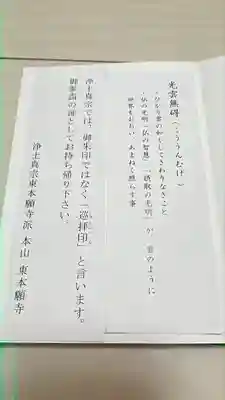 光雲無碍(こううんむげ)
・ひかり雲の如くしてさわりなきこと
・仏の光明「仏の智慧」「摂取の光明」が 雲のように
世界をおおい あまねく照らす事
浄土真宗では、御朱印ではなく「巡拝印」と言います。
御参詣の証としてお持ち帰り下さい。
浄土真宗東本願寺派 本山 東本願寺